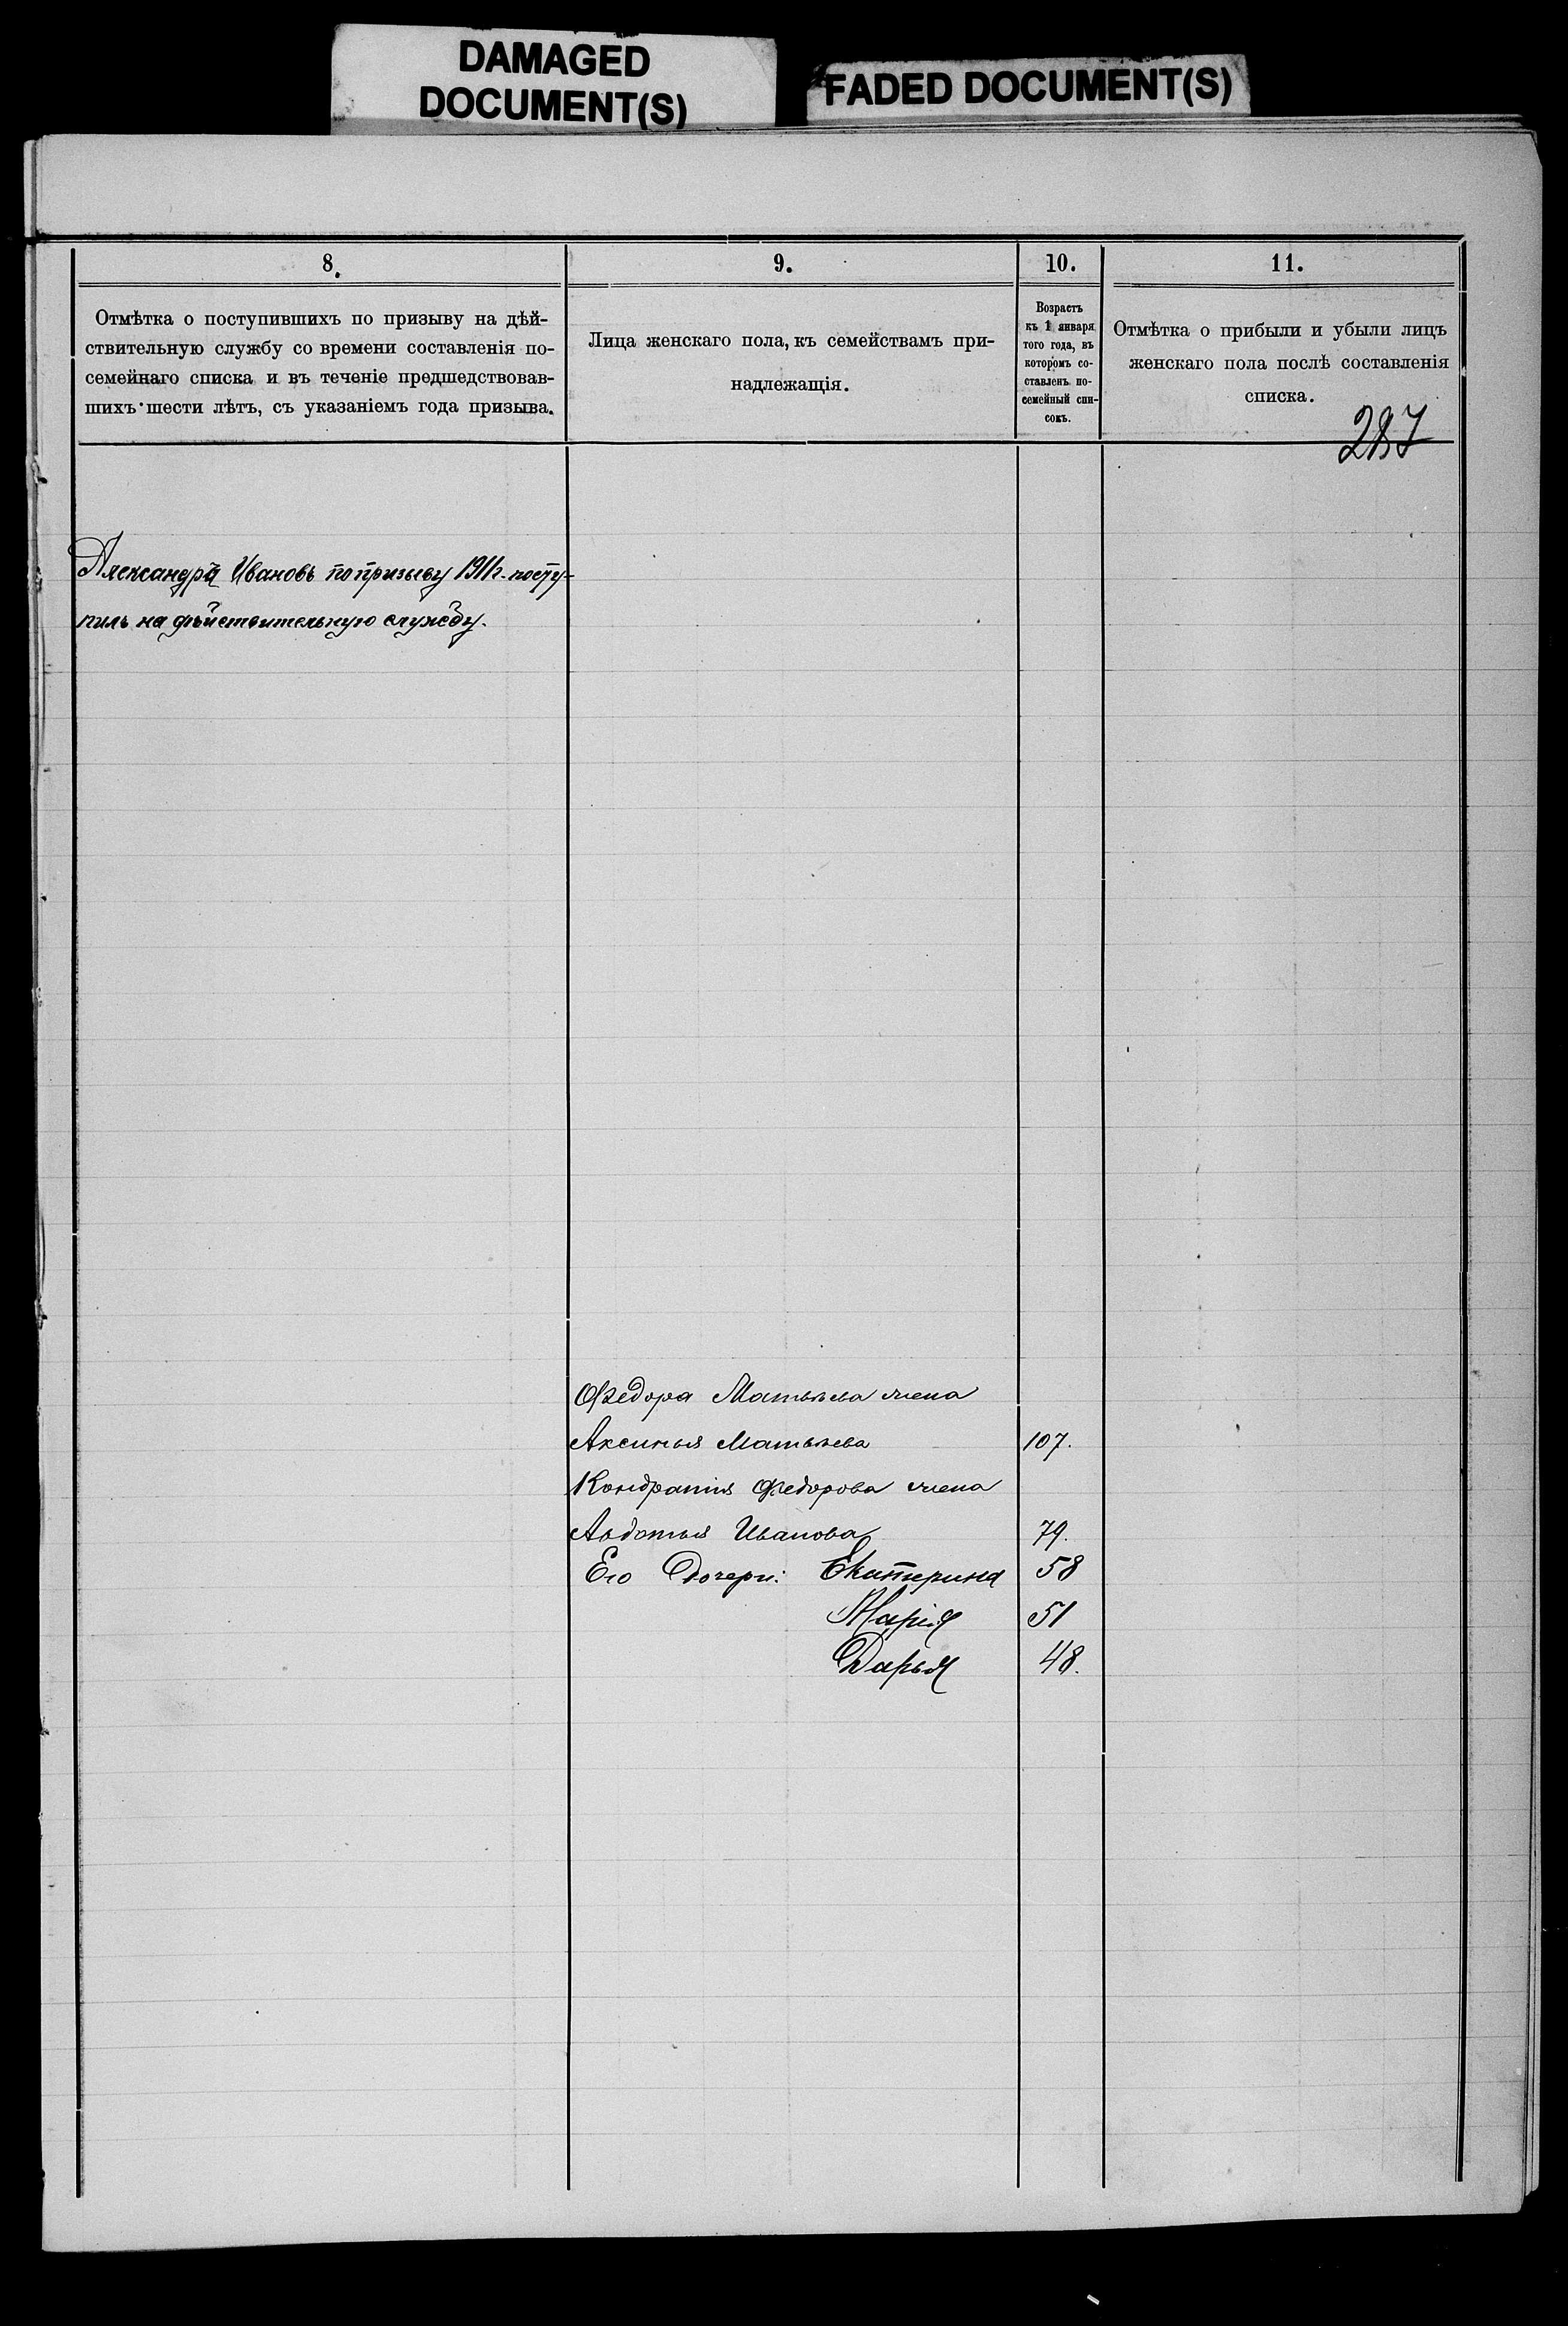 DAMAGED
DOCUMENT(S)
FADED DOCUMENT(S)
8.
Отмѣтка о поступившихъ по призыву на дѣй-
ствительную службу со времени составленія по-
семейнаго списка и въ теченіе предшедствовав-
шихъ шести лѣтъ, съ указаніемъ года призыва.
9.
Лица женскаго пола, къ семействамъ при-
надлежащія.
10.
Возрастъ
къ 1 января
того года, въ
которомъ со-
ставленъ по-
семейный спи-
сокъ.
11.
Отмѣтка о прибыли и убыли лицъ
женскаго пола послѣ составленія
списка.
287
Ивановъ по призыву 1911г. посту-
пилъ на дѣйствительную службу.
Ѳедора Матвѣева жена
Аксинья Матвѣева 107.
Кондратія Ѳедорова жена
Авдотья Иванова 79.
Его дочери: Екатерина 58
Марія 51
Дарья 48.